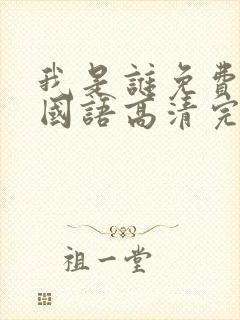 我是誰免費
國語高清完
祖一堂